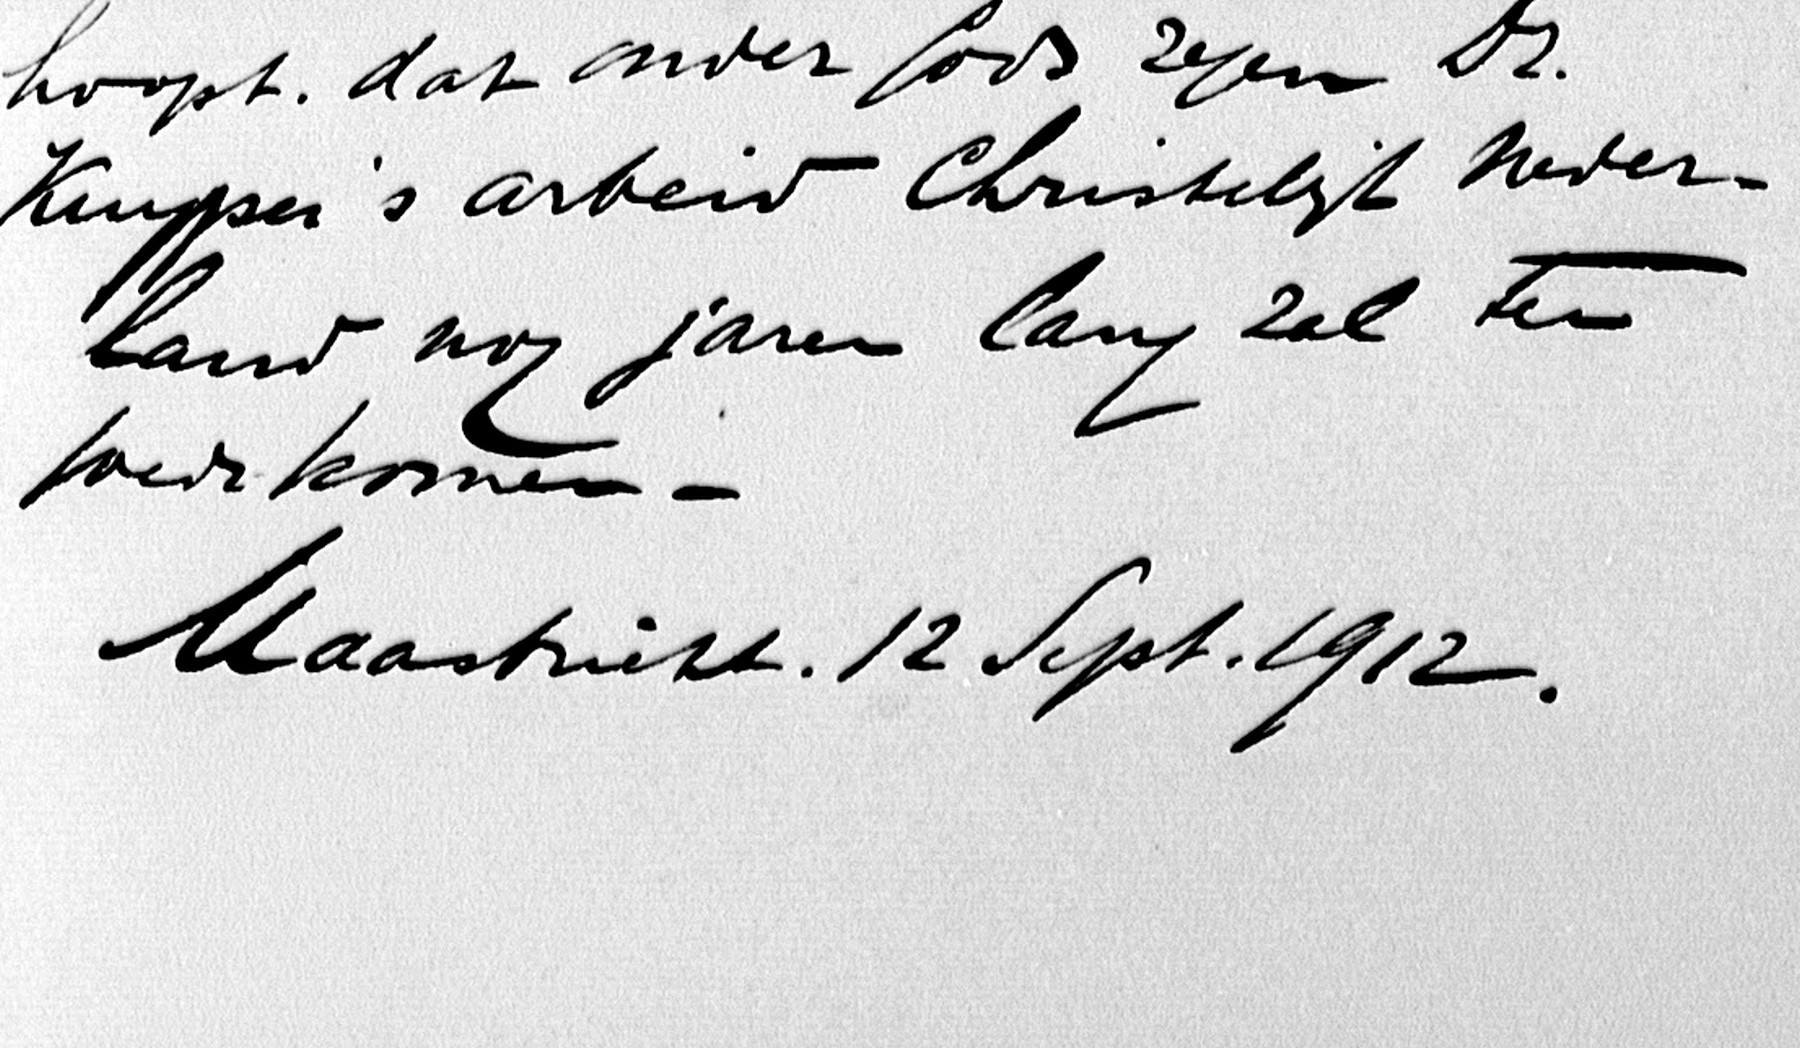 hoopt. dat onder Gods zegen Dr.
Kuyper's arbeid Christelijk Neder-
land nog jaren lang zal ten
goede komen -
Maastricht. 12 Sept. 1912.